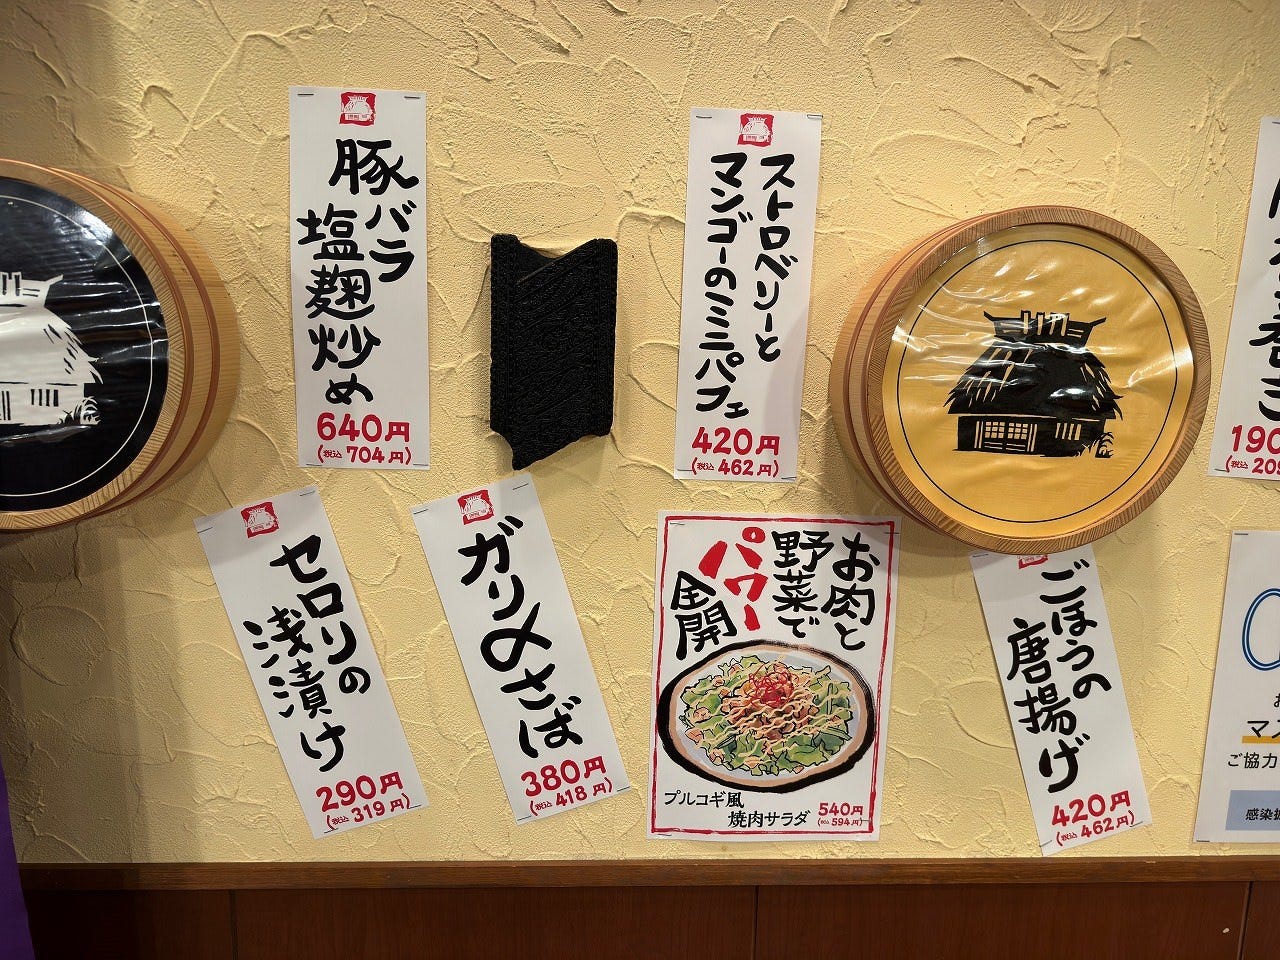 豚バラ
塩麹炒め
640円
(税込 704円)
ストロベリーと
マンゴーのミニパフェ
420円
(税込 462円)
セロリの
浅漬け
290円
(税込 319円)
ガリ〆さば
380円
(税込 418円)
お肉と
野菜で
パワー
全開
プルコギ風
焼肉サラダ
540円
(税込 594円)
ごぼうの
唐揚げ
420円
(税込 462円)
190
(税込 209
マ
ご協力
感染